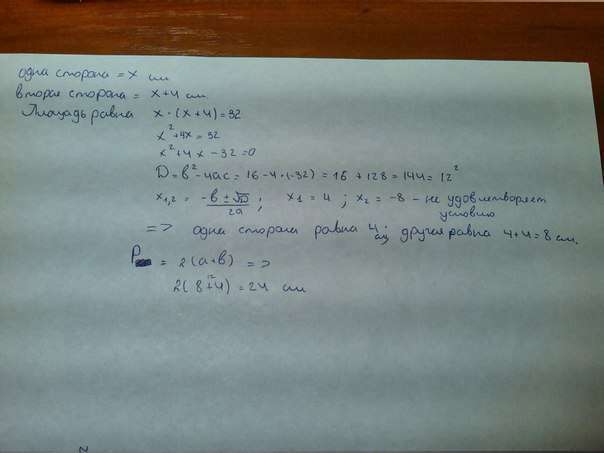 одна сторона = x см
вторая сторона = x+4 см
Площадь равна x·(x+4)=32
x²+4x=32
x²+4x-32=0
D=b²-4ac=16-4·(-32)=16+128=144=12²
x₁,₂ = (-b±√D)/2a ; x₁=4 ; x₂=-8 - не удовлетворяет
условию
=> одна сторона равна 4 см; другая равна 4+4=8 см.
P = 2(a+b) =>
12
2(8+4)=24 см